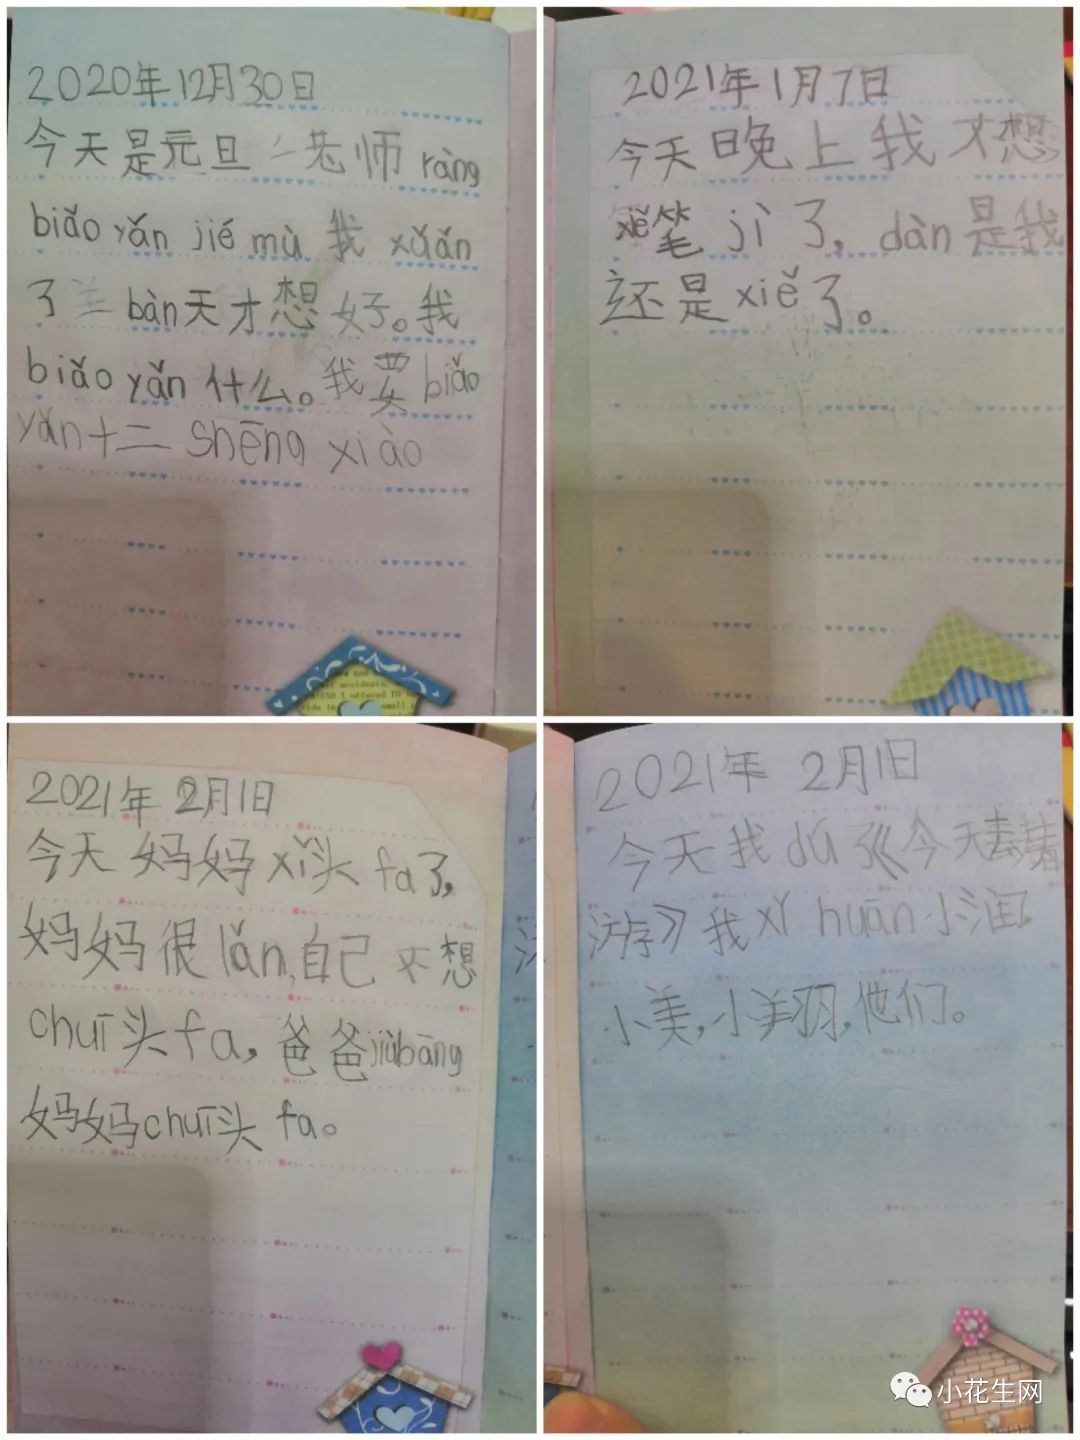 2020年12月30日
今天是元旦老师ràng
biǎo yǎn jié mù 我 xuǎn
了 bàn天才想好。我
biǎo yǎn 什么。我要biǎo
yǎn十二 shēng xiào
2021年1月7日
今天晚上我才想
xiě笔jì了，dàn是我
还是xiě了。
2021年2月1日
今天妈妈xǐ头fa了，
妈妈很lǎn，自己不想
chuī头fa，爸爸jiùbāng
妈妈chuī头fa。
2021年2月1日
今天我dú了《今天去
游》我xǐ huān小
小美，小美羽，他们。
小花生网